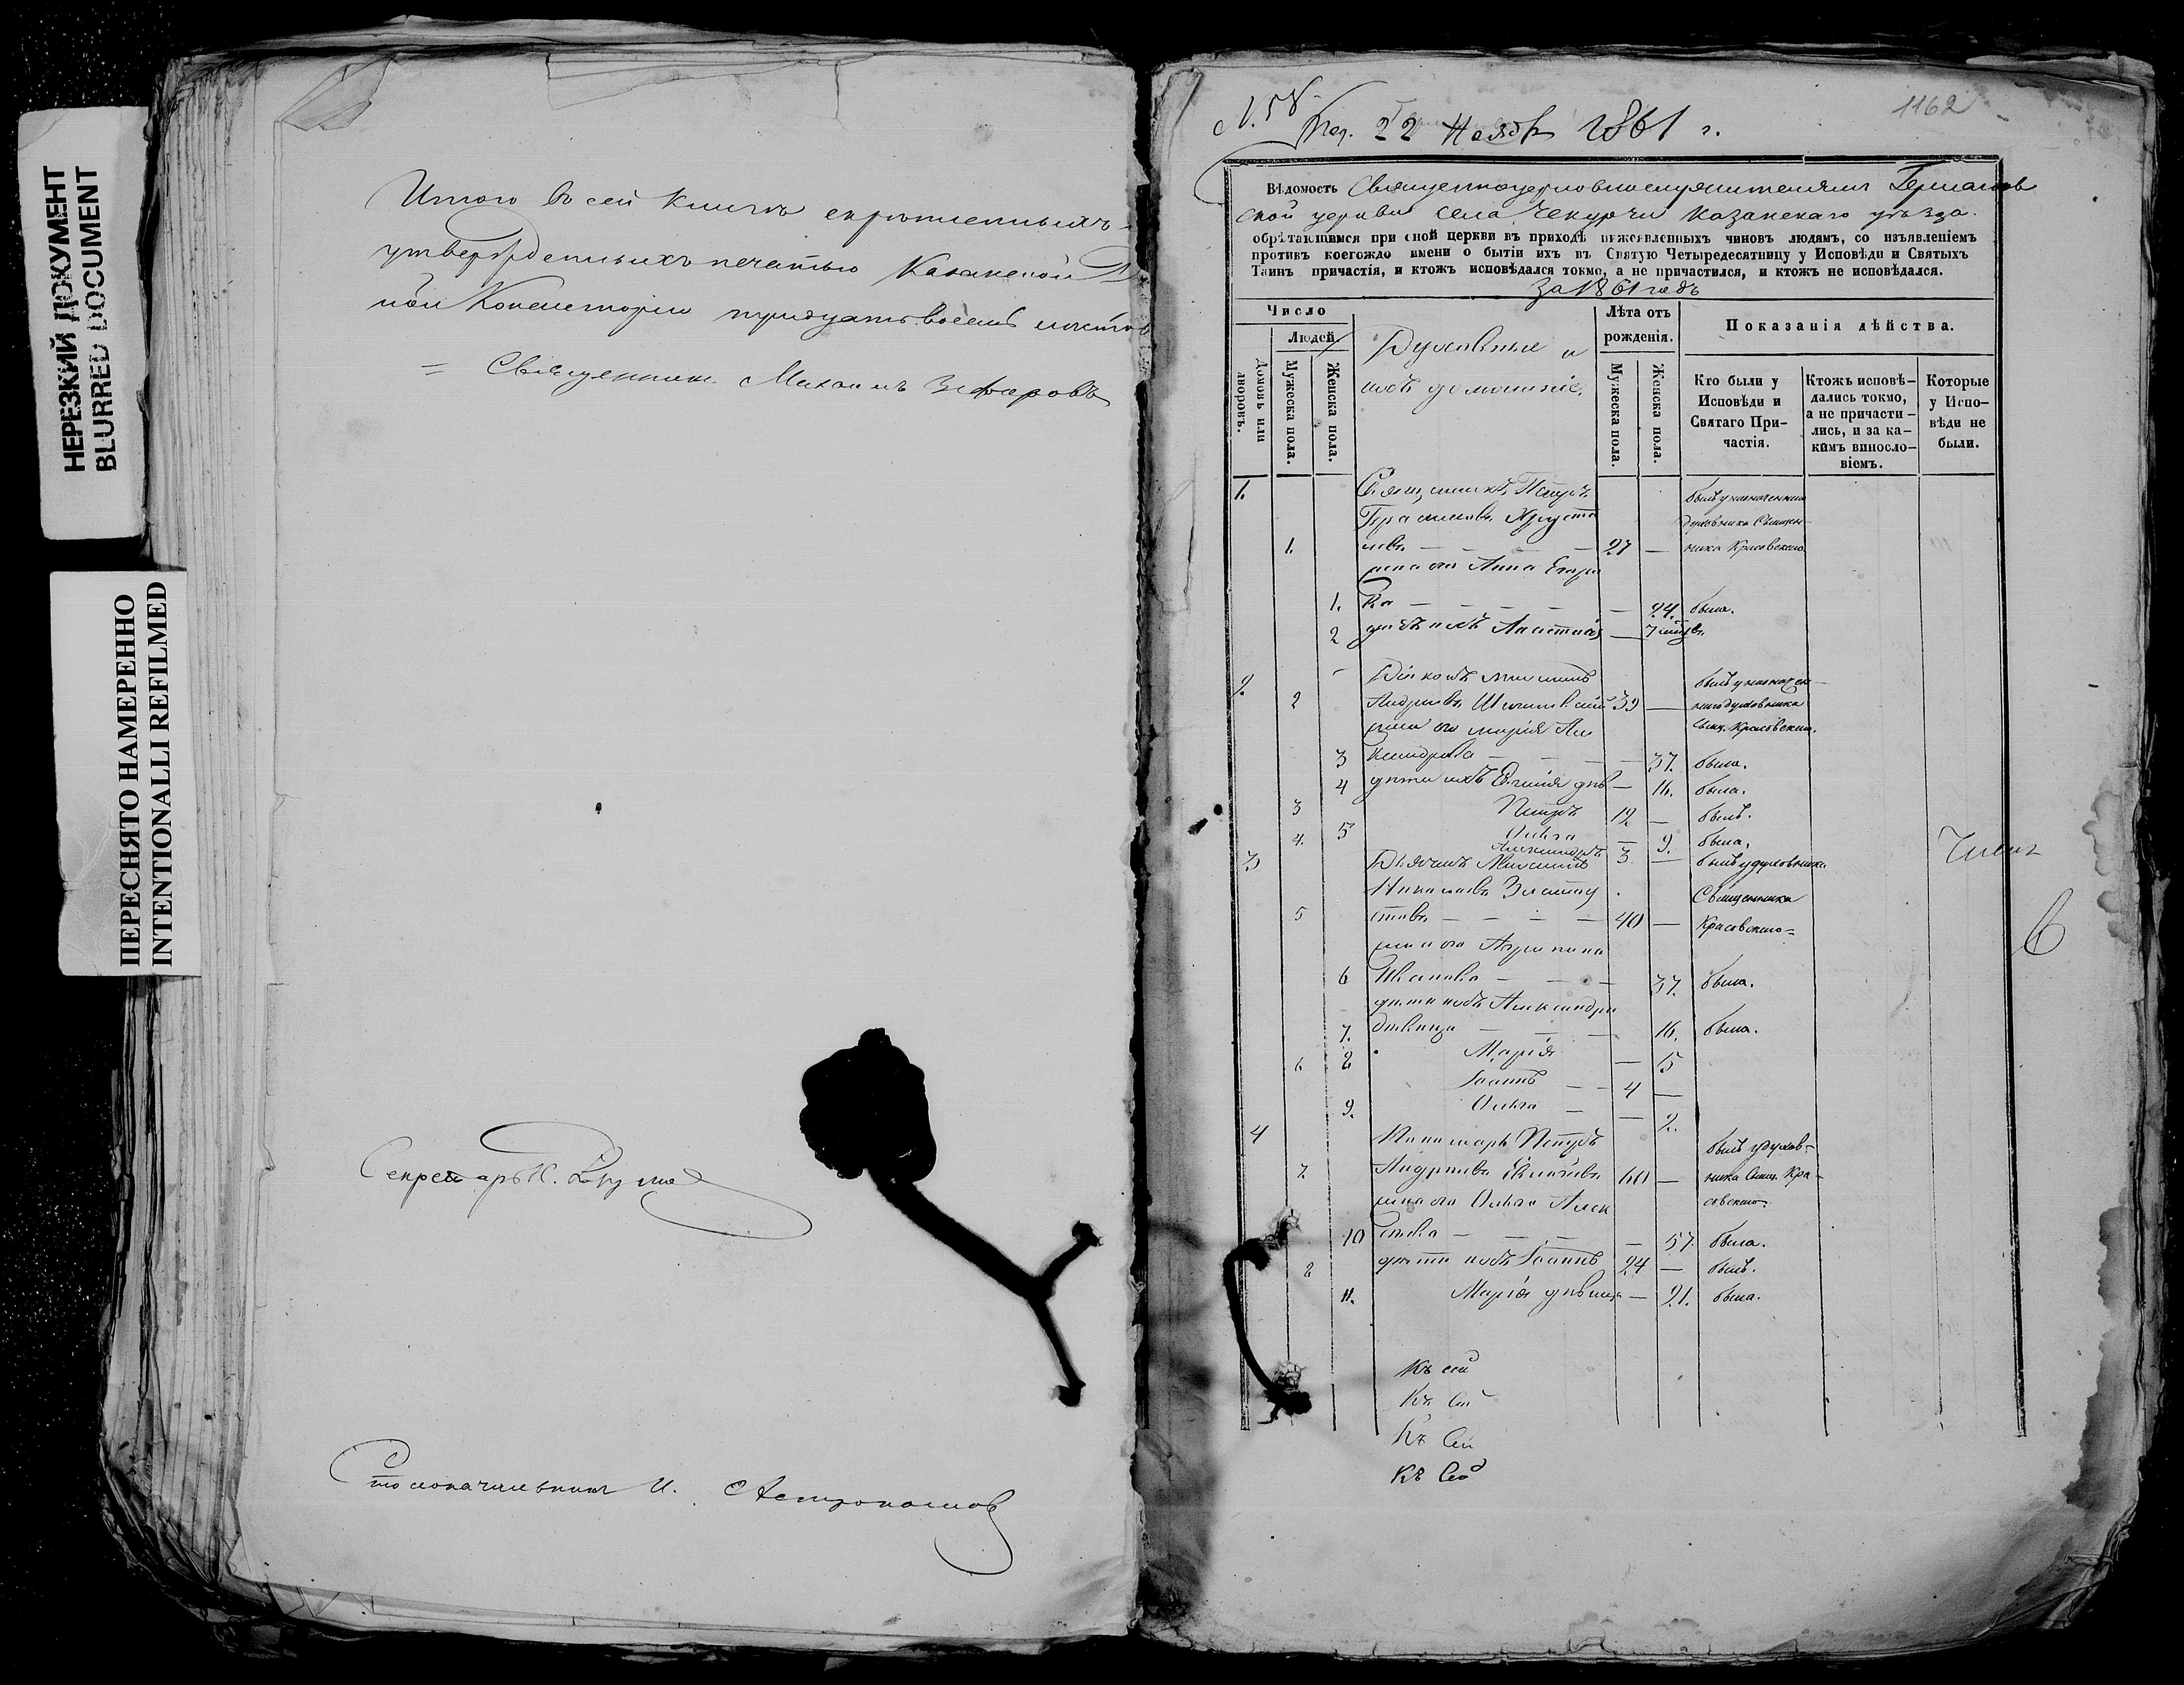 НЕРЕЗКИЙ ДОКУМЕНТ
BLURRED DOCUMENT
ПЕРЕСНЯТО НАМЕРЕННО
INTENTIONALLI REFILMED
Итого въ сей книгѣ скрѣпленныхъ
утвержденныхъ печатью Казанской
ной Консисторіи тридцать восемь листов
= Священник Михаилъ Зефировъ
Секретарь
Столоначальникъ И. Астрономов
1162
N. 58
22 Ноября 1861 г.
Вѣдомость Священноцерковнослужителямъ Германов
ской церкви села Чекурчи Казанскаго уѣзда.
обрѣтающимся при оной церкви въ приходѣ нижеявленныхъ чиновъ людямъ, со изъявленіемъ
противъ коегождо имени о бытіи ихъ въ Святую Четыредесятницу у Исповѣди и Святыхъ
Таинъ причастія, и ктожъ исповѣдался токмо, а не причастился, и ктожъ не исповѣдался.
За 1861 годъ
Число
Людей.
Домовъ или дворовъ.
Мужеска пола.
Женска пола.
Духовные и
ихъ домашніе.
Лѣта отъ
рожденія.
Мужеска пола.
Женска пола.
Показанія дѣйства.
Кто были у
Исповѣди и
Святаго При-
частія.
Ктожъ исповѣ-
дались токмо,
а не причасти-
лись, и за ка-
кимъ винословіемъ.
Которые
у Испо-
вѣди не
были.
1. Священникъ Петръ былъ у назначеннаго
Герасимовъ Хруста духовника Священ-
1. левъ — 27 — ника Красовскаго
жена его Анна Егоро
1. ва — 24. была.
2 дочь ихъ Анастасія — 7
2. Діаконъ был у назначен-
2 Андреевъ 39 — наго духовника
жена его Марія Але Свящ. Красовскаго.
3 ксандрова — 37. была.
4 дѣти ихъ — 16. была.
3 Петръ 12 — былъ.
5 Ольга — 9. была.
4. Александръ 3 —
3 Дьячекъ былъ у духовника
Николаевъ Златоу Священника
5 стовъ — 40 — Красовскаго =
жена его Агрипина
6 Иванова — 37. была.
дѣти ихъ Александра
7. дѣвица — 16. была.
8 Марія — 5
6 Іоаннъ — 4 —
9. Ольга — 2.
4 Пономарь Петръ былъ у духов-
7 Андреевъ 60 — ника Свящ. Кра-
жена его Ольга Алек совскаго.
10 сѣева — 57. была.
8 дѣти ихъ Іоаннъ 24 — былъ.
11. Марія дѣвица — 21. была.
Къ сей
Къ Сей
Къ Сей
Къ Сей